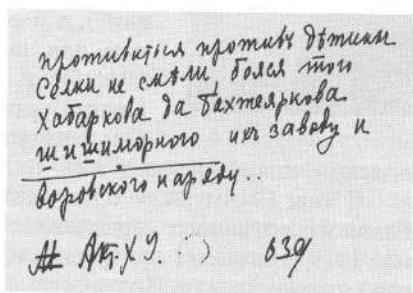 противиться противъ Дѣтины
Селки не смѣли, бояся того
Хабаркова да Бахтеяркова
шишиморного ихъ заводу и
воровского наряду...
Акт. Х. У. 639